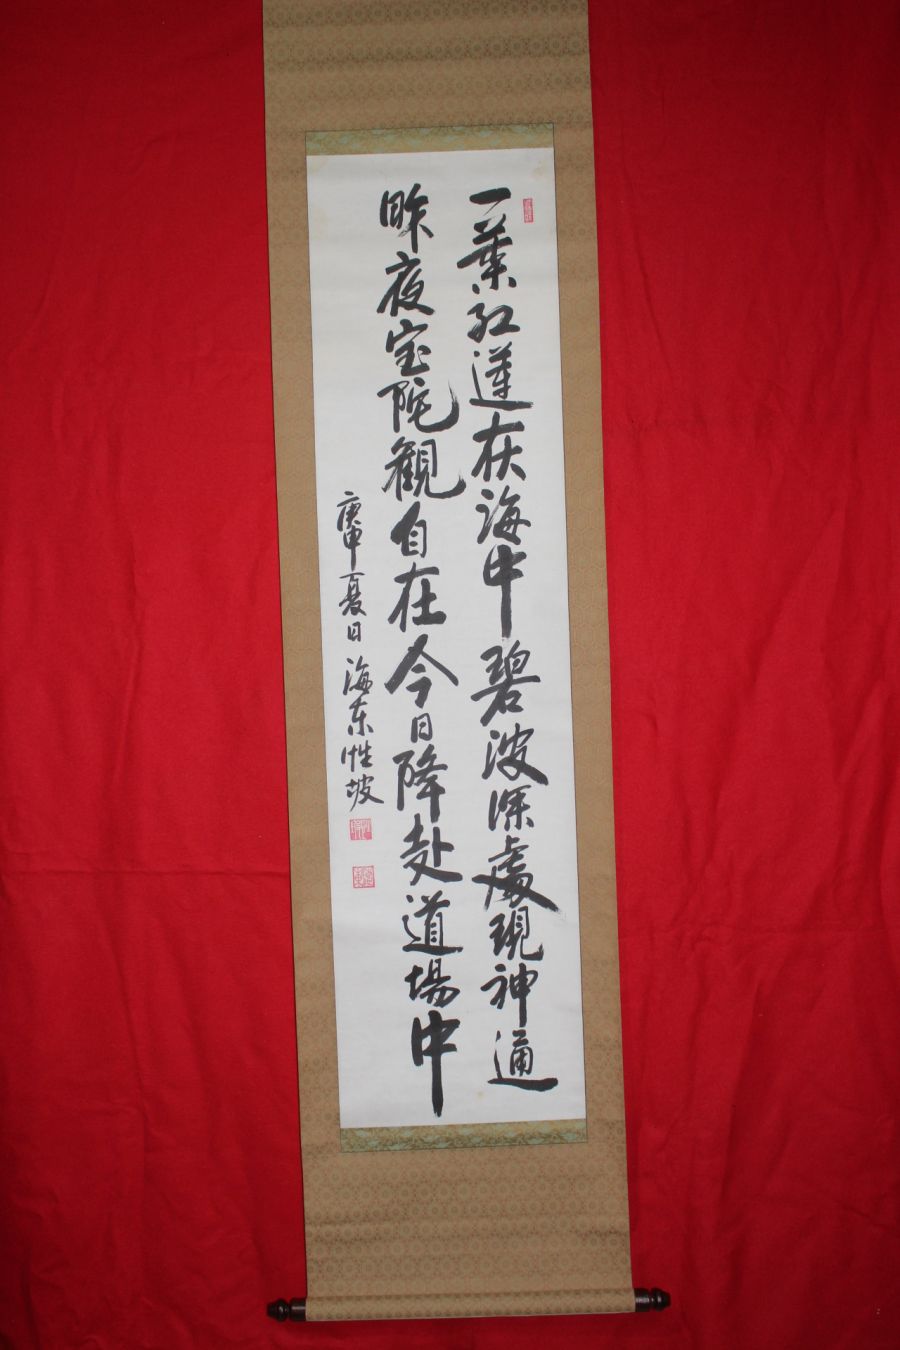 一葉紅蓮在海中碧波深處現神通
昨夜宝陀観自在今日降赴道場中
庚申夏日 海东性坡